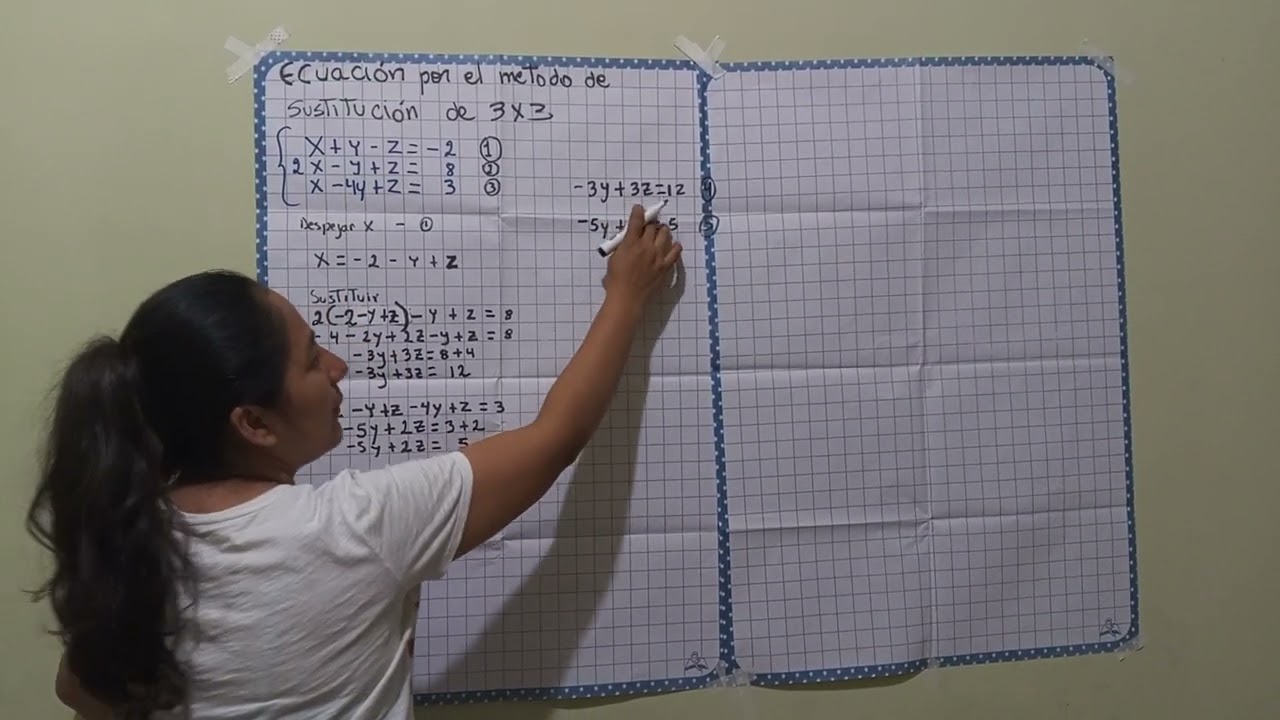 Ecuación por el metodo de
Sustitución de 3x3
x + y - z = -2 ①
2x - y + z = 8 ②
x - 4y + z = 3 ③
Despejar x - ①
x = -2 - y + z
Sustituir
2(-2-y+z) - y + z = 8
-4 - 2y + 2z - y + z = 8
-3y + 3z = 8 + 4
-3y + 3z = 12
-y + z - 4y + z = 3
-5y + 2z = 3 + 2
-5y + 2z = 5
-3y + 3z = 12 ④
-5y + 5 ⑤